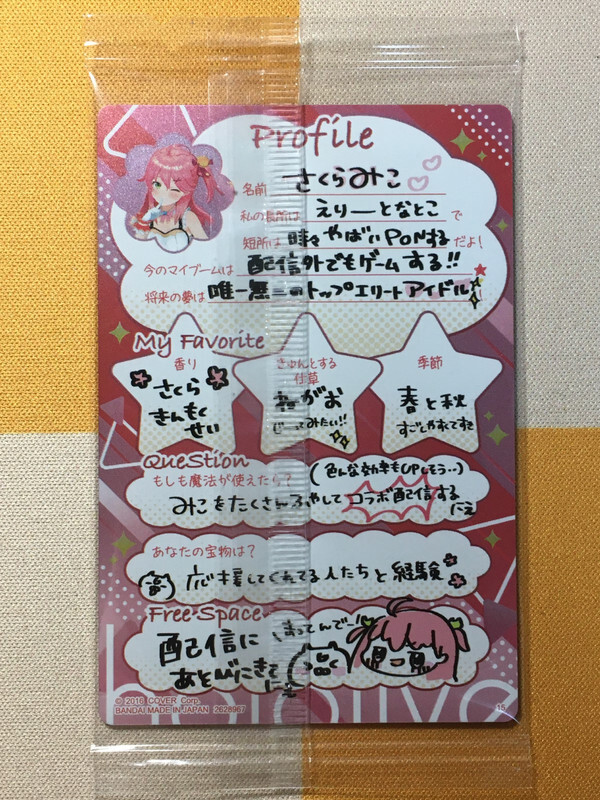 Profile
名前 さくらみこ
私の長所は えりーとなとこ で
短所は 時々やばいPONする だよ!
今のマイブームは 配信外でもゲームする!!
将来の夢は 唯一無二のトップエリートアイドル!
My Favorite
香り
さくら
きんもく
せい
きゅんとする
仕草
ねがお
じーってみたい!!
季節
春と秋
すごしやすいです
Question
もしも魔法が使えたら?
(色んな効率もUPしそう‥)
みこをたくさんふやしてコラボ配信する
にぇ
あなたの宝物は?
応援してくれてる人たちと経験
Free Space
配信に
あそびにきて
にぇ
まってんでー!!
hololive
© 2016 COVER Corp.
BANDAI MADE IN JAPAN 2628967
15